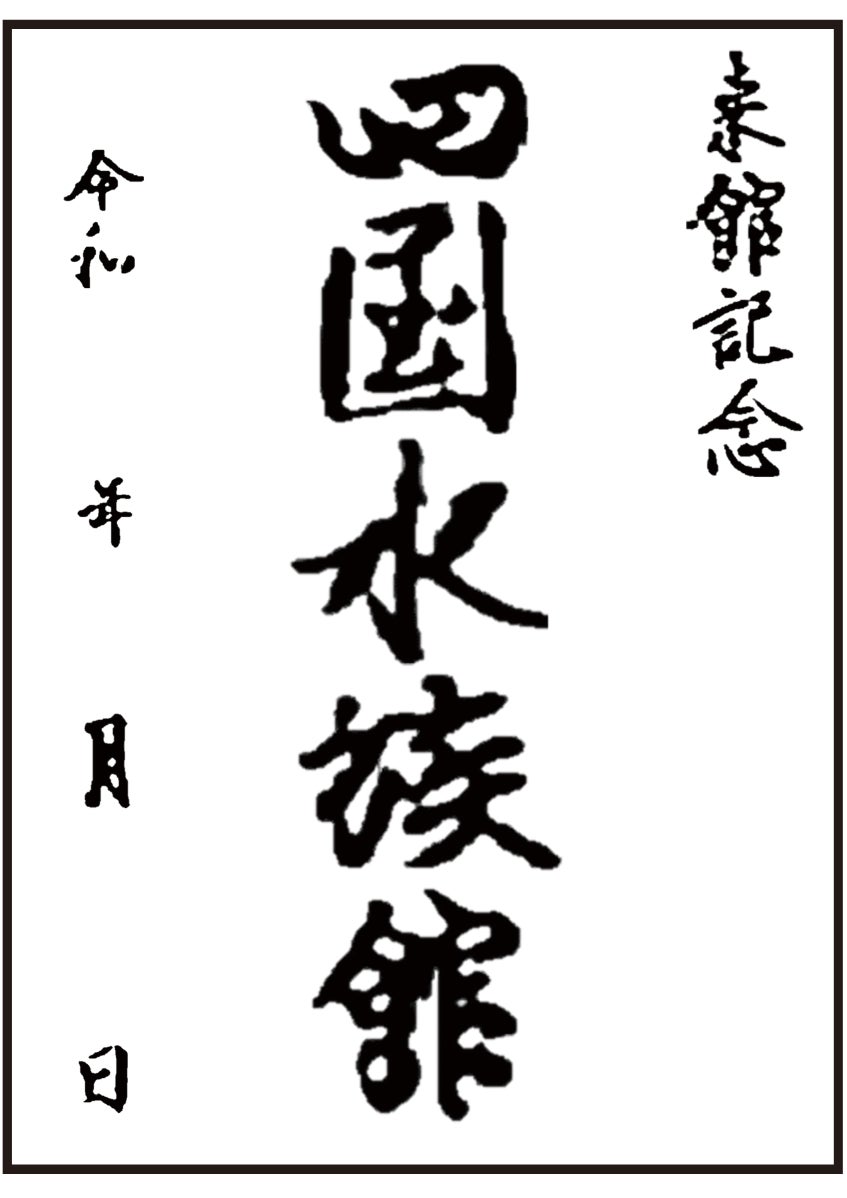 来館記念
四国水族館
令和 年 月 日